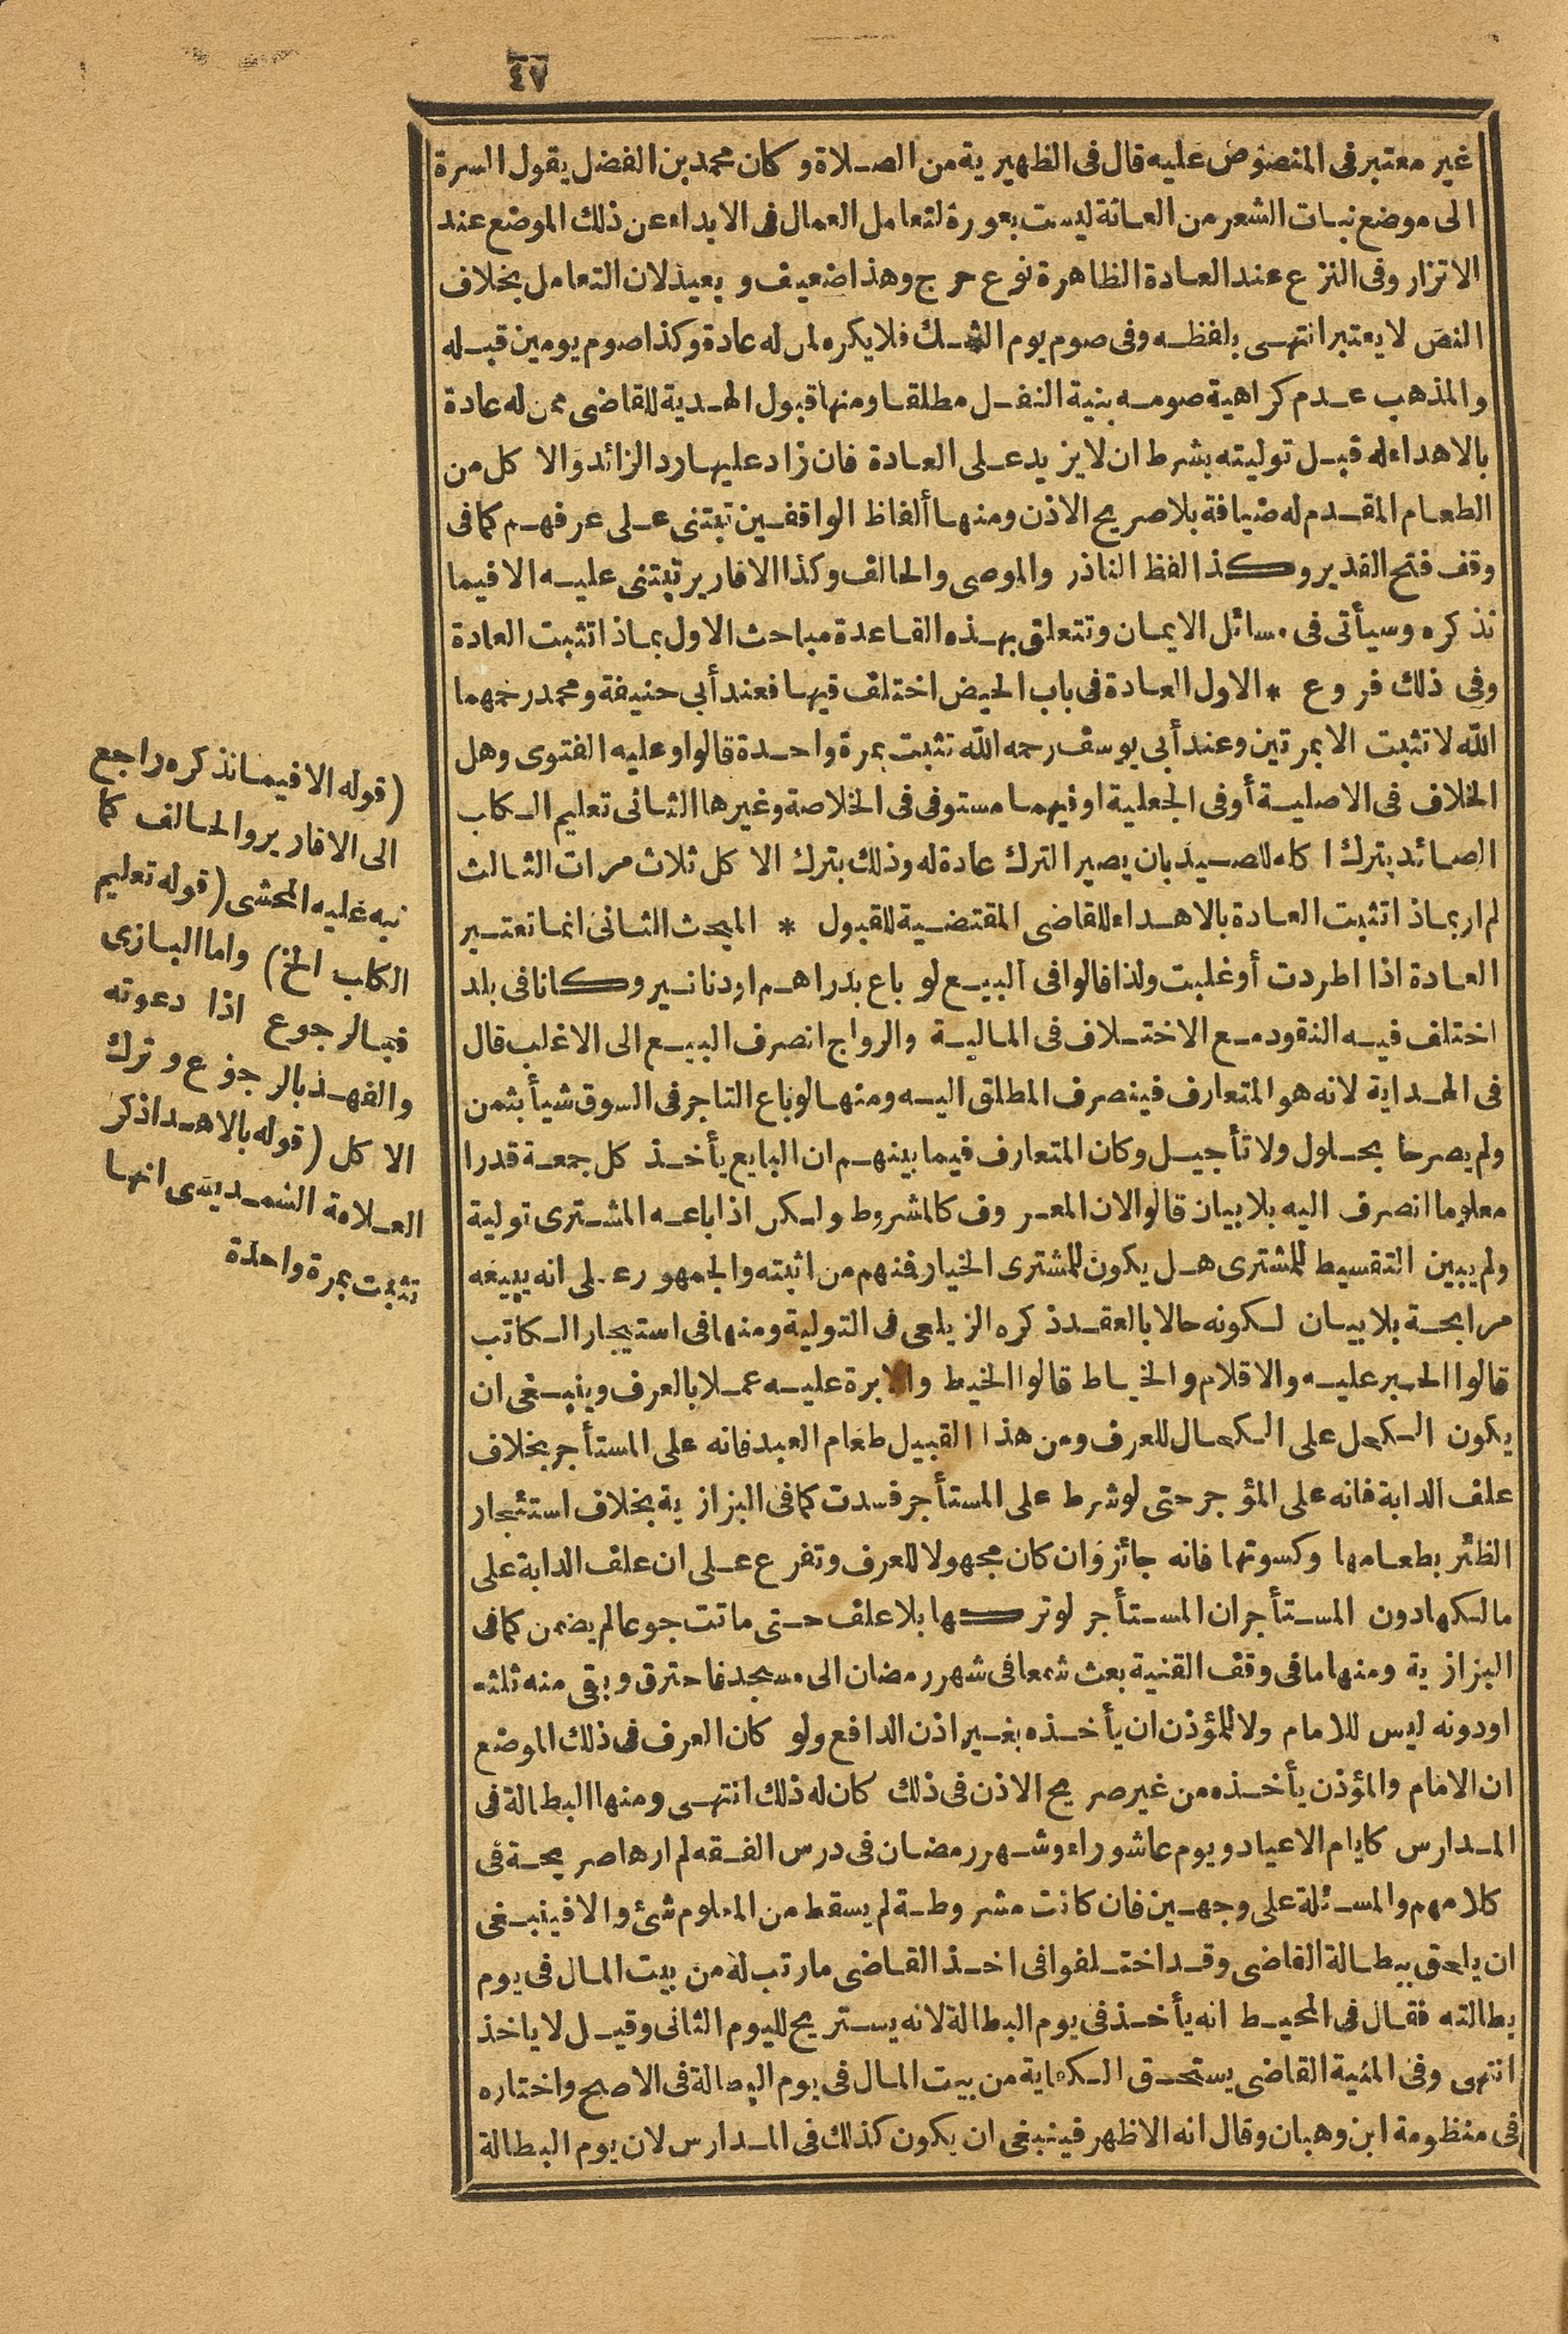 ٤٧
غير معتبر فى المنصوص عليه قال فى الظهيرية من الصلاة وكان محمد بن الفضل يقول السرة
الى موضع نبات الشعر من العانة ليست بعورة لتعامل العمال فى الابداء عن ذلك الموضع عند
الاتزار وفى النزع عند العادة الظاهرة نوع حرج وهذا ضعيف وبعيد لان التعامل بخلاف
النص لا يعتبر انتهى بلفظه وفى صوم يوم الشك فلا يكره لمن له عادة وكذا صوم يومين قبله
والمذهب عدم كراهية صومه بنية النفل مطلقا ومنها قبول الهدية للقاضى ممن له عادة
بالاهداء له قبل توليته بشرط ان لا يزيد على العادة فان زاد عليها رد الزائد والاكل من
الطعام المقدم له ضيافة بلا صريح الاذن ومنها ألفاظ الواقفين تبتنى على عرفهم كما فى
وقف فتح القدير وكذا لفظ الناذر والموصى والحالف وكذا الاقارير تبتنى عليه الا فيما
نذكره وسيأتى فى مسائل الايمان وتتعلق بهذه القاعدة مباحث الاول بماذا تثبت العادة
وفى ذلك فروع * الاول العادة فى باب الحيض اختلف فيها فعند أبى حنيفة ومحمد رحمهما
الله لا تثبت الا بمرتين وعند أبى يوسف رحمه الله تثبت بمرة واحدة قالوا وعليه الفتوى وهل
الخلاف فى الاصلية أو فى الجعلية او فيهما مستوفى فى الخلاصة وغيرها الثانى تعليم الكلب
الصائد بترك اكله للصيد بان يصير الترك عادة له وذلك بترك الاكل ثلاث مرات الثالث
لم ار بماذا تثبت العادة بالاهداء للقاضى المقتضية للقبول * المبحث الثانى انما تعتبر
العادة اذا اطردت أو غلبت ولذا قالوا فى البيع لو باع بدراهم او دنانير وكانا فى بلد
اختلف فيه النقود مع الاختلاف فى المالية والرواج انصرف البيع الى الاغلب قال
فى الهداية لانه هو المتعارف فينصرف المطلق اليه ومنها لو باع التاجر فى السوق شيأ بثمن
ولم يصرحا بحلول ولا تأجيل وكان المتعارف فيما بينهم ان البايع يأخذ كل جمعة قدرا
معلوما انصرف اليه بلا بيان قالوا لان المعروف كالمشروط ولكن اذا باعه المشترى تولية
ولم يبين التقسيط للمشترى هل يكون للمشترى الخيار فمنهم من اثبته والجمهور على انه يبيعه
مرابحة بلا بيان لكونه حالا بالعقد ذكره الزيلعى فى التولية ومنها فى استيجار الكاتب
قالوا الحبر عليه والاقلام والخياط قالوا الخيط والابرة عليه عملا بالعرف وينبغى ان
يكون الكحل على الكحال للعرف ومن هذا القبيل طعام العبد فانه على المستأجر بخلاف
علف الدابة فانه على المؤجر حتى لو شرط على المستأجر فسدت كما فى البزازية بخلاف استئجار
الظئر بطعامها وكسوتها فانه جائز وان كان مجهولا للعرف وتفرع على ان علف الدابة على
مالكها دون المستأجر ان المستأجر لو تركها بلا علف حتى ماتت جوعا لم يضمن كما فى
البزازية ومنها ما فى وقف القنية بعث شمعا فى شهر رمضان الى مسجد فاحترق وبقى منه ثلثه
او دونه ليس للامام ولا للمؤذن ان يأخذه بغير اذن الدافع ولو كان العرف فى ذلك الموضع
ان الامام والمؤذن يأخذه من غير صريح الاذن فى ذلك كان له ذلك انتهى ومنها البطالة فى
المدارس كايام الاعياد ويوم عاشوراء وشهر رمضان فى درس الفقه لم ارها صريحة فى
كلامهم والمسئلة على وجهين فان كانت مشروطة لم يسقط من المعلوم شئ والا فينبغى
ان يلحق ببطالة القاضى وقد اختلفوا فى اخذ القاضى ما رتب له من بيت المال فى يوم
بطالته فقال فى المحيط انه يأخذ فى يوم البطالة لانه يستريح لليوم الثانى وقيل لا ياخذ
انتهى وفى المنية القاضى يستحق الكفاية من بيت المال فى يوم البطالة فى الاصح واختاره
فى منظومة ابن وهبان وقال انه الاظهر فينبغى ان يكون كذلك فى المدارس لان يوم البطالة
(قوله الا فيما نذكره راجع
الى الاقارير والحالف كما
نبه عليه المحشى (قوله تعليم
الكلب الخ) واما البازى
فبالرجوع اذا دعوته
والفهد بالرجوع وترك
الاكل (قوله بالاهدا ذكر
العلامة الشمديسى انها
تثبت بمرة واحدة